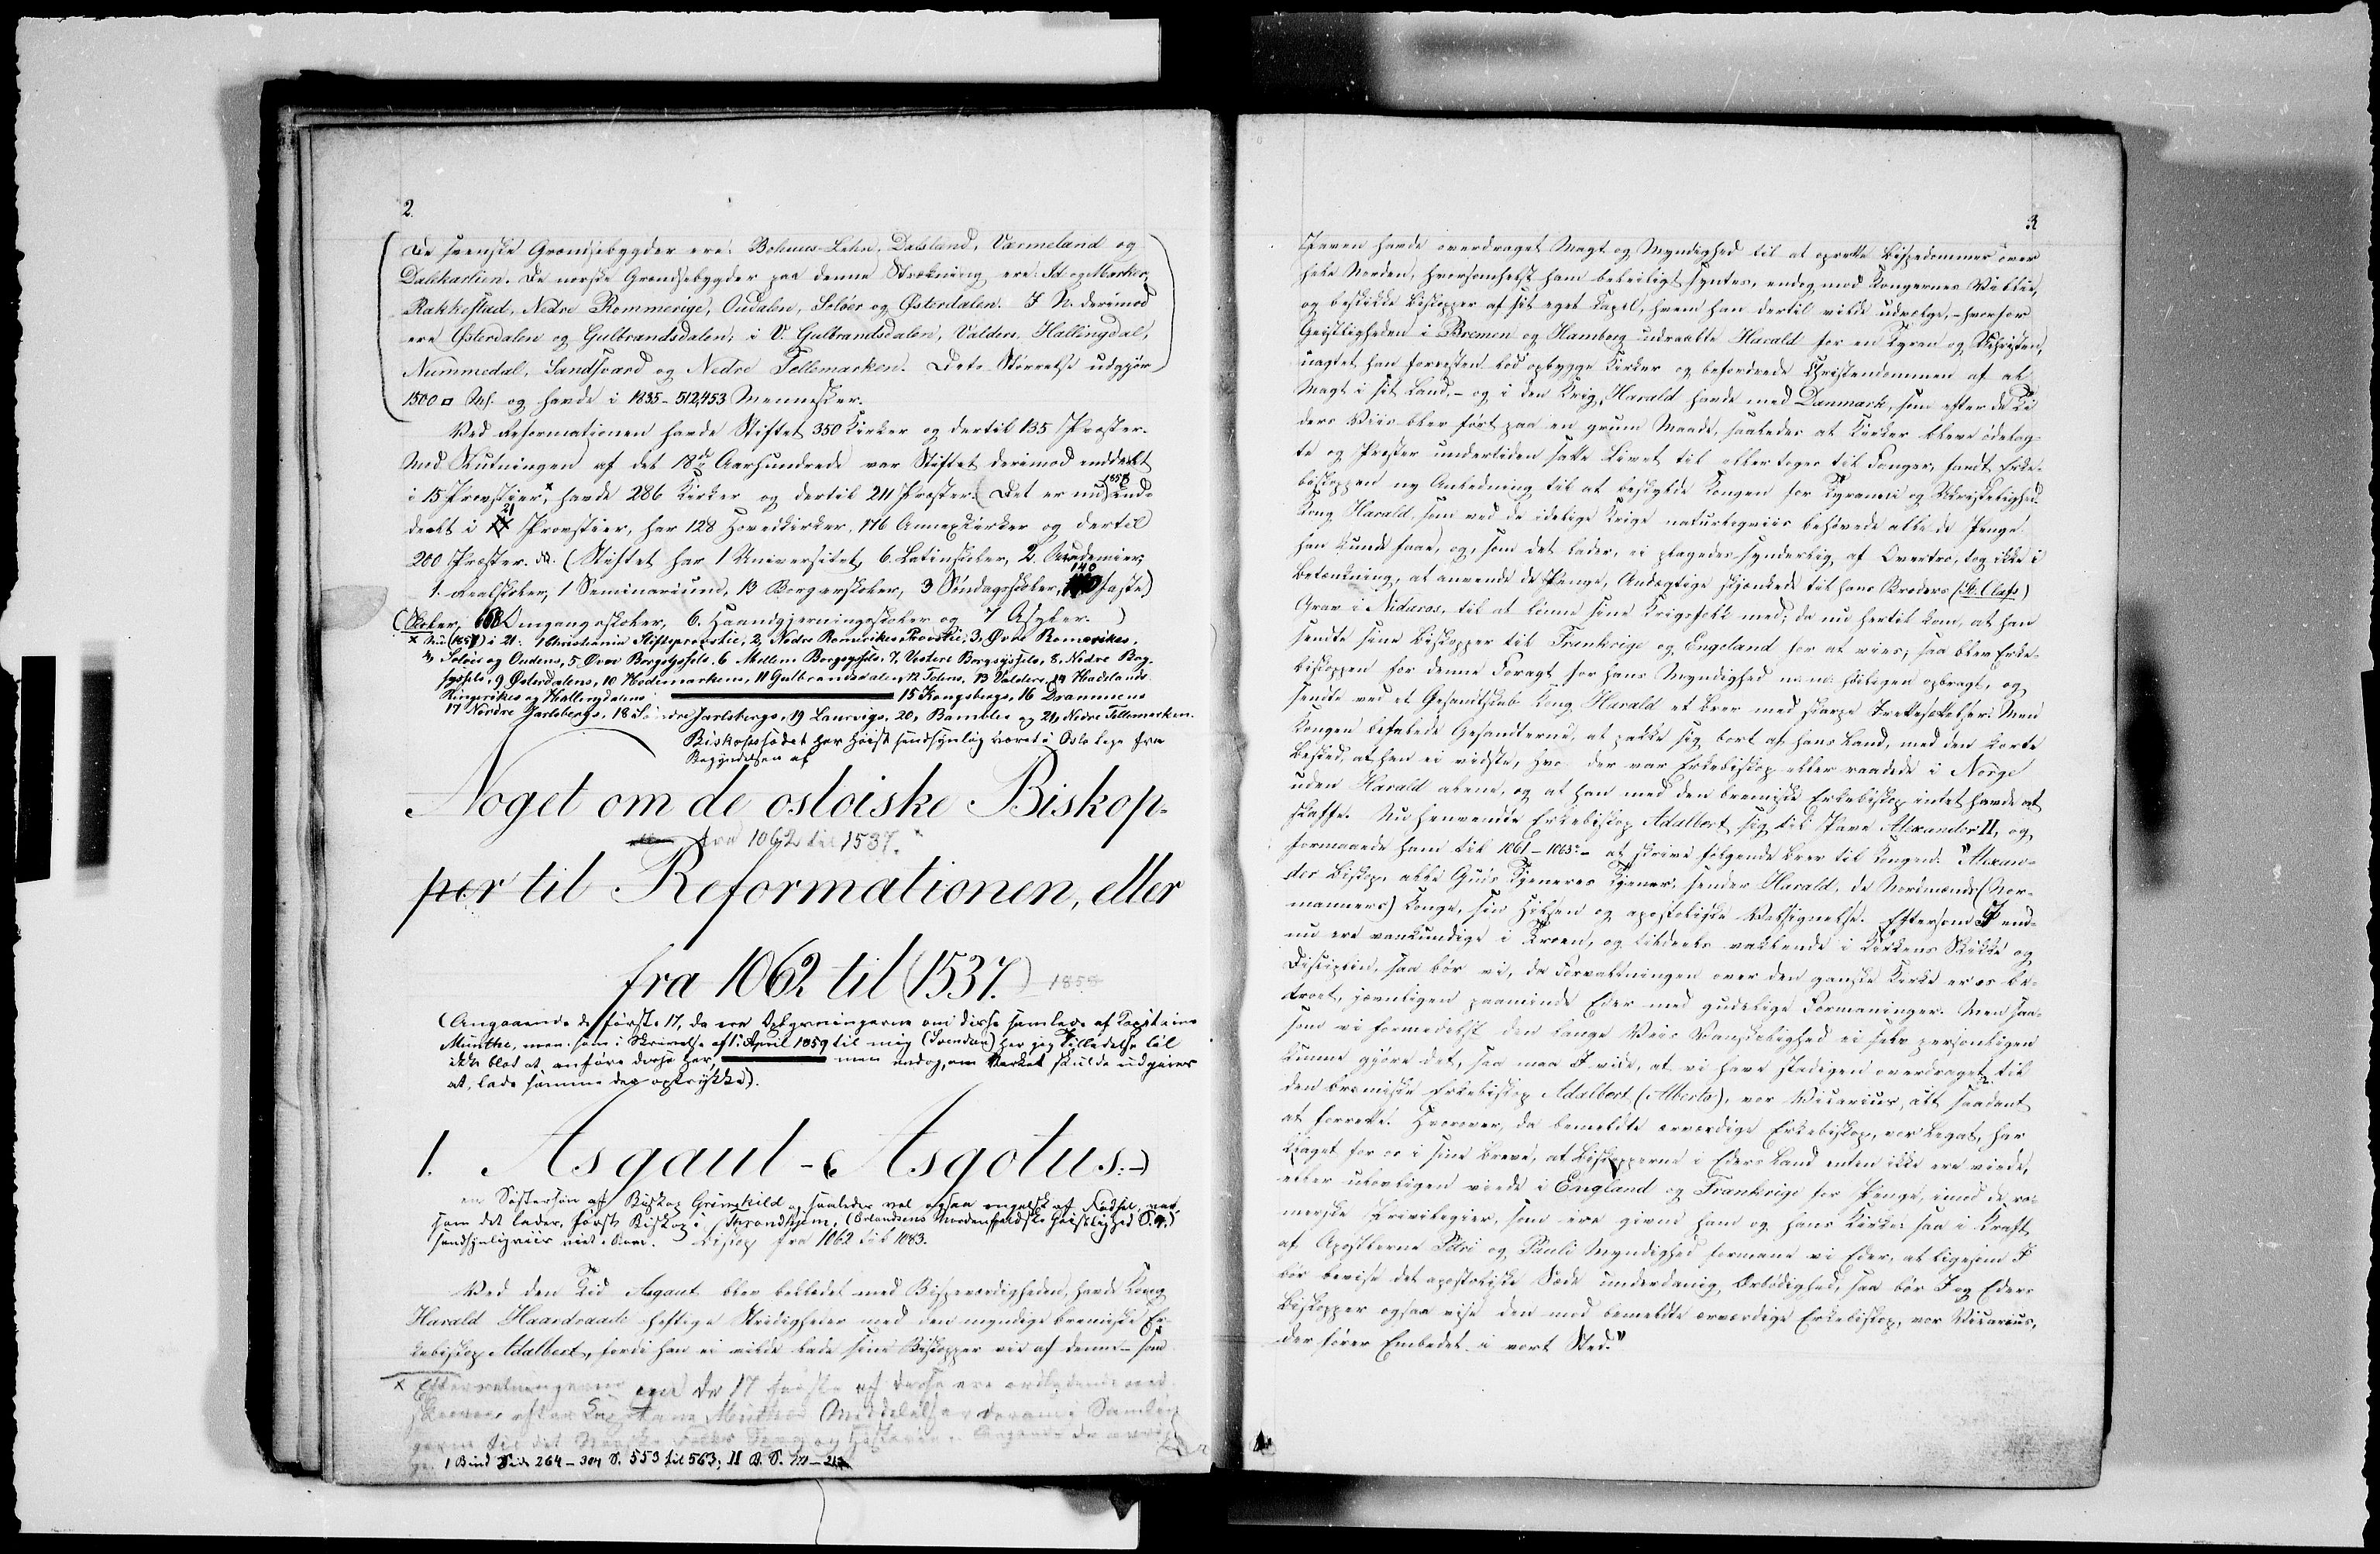 2.
De svenske Grændsebygder ere: Bohuus-Lehn, Dalsland, Værmeland og
Dalekarlien. De norske Grændsebygder paa denne Strækning ere: Id og Marker,
Rakkestad, Nedre Rommerige, Oudalen, Soloer og Østerdalen. I N. derimod
ere Østerdalen og Gulbrandsdalen; i V. Gulbrandsdalen, Valders, Hallingdal,
Nummedal, Sandsværd og Nedre Tellemarken. Dets Størrelse udgjør
1500 □ Mil og havde i 1835 - 512,453 Mennesker.
Ved Reformationen havde Stiftet 350 Kirker og dertil 135 Præster.
Med Slutningen af det 18de Aarhundrede var Stiftet derimod inddeelt
i 15 Provstier,x havde 286 Kirker og dertil 211 Præster. (Det er nu) ind-
deelt i 21 Provstier, har 128 Hovedkirker, 176 Annexkirker og dertil
200 Præster. (Stiftet har 1 Universitet, 6 Latinskoler, 2 Academier,
1 Realskoler, 1 Seminarium, 13 Borgerskoler, 3 Søndagsskoler, 140 faste)
(Skoler, Omgangsskoler, 6 Haandgjerningsskoler og 7 Asyler.)
x Nu (1857) i 21: 1 Christiania Stiftsprovstie, 2, Nedre Romerikes Provstie, 3, Øvre Romerikes,
4, Soloer og Oudens, 5 Øvre Borgesyssels, 6 Mellem Borgesyssels, 7, Vestere Borgsyssels, 8, Nedre Borg-
syssels, 9 Østerdalens, 10 Hedemarkens, 11 Gulbrandsdalens, 12 Totens, 13 Valders, 14 Hadelands
Ringerikes og Hallingdalens 15 Kongsbergs, 16 Drammens
17 Nordre Jarlsbergs, 18 Søndre Jarlsbergs, 19 Laurvigs, 20, Bamble og 21, Nedre Tellemarken.
Biskopssædet har høist sandsynlig været i Oslo lige fra
Begyndelsen af
Noget om de osloiske Biskop-
fra 1062 til 1537.
per til Reformationen, eller
fra 1062 til (1537.) 1858
(Angaaende de første 17, da ere Oplysningerne om disse samlede af Kapitaine
Munthe, men som i Skrivelse af 1. April 1859 til mig (Svendsen) har jeg Tilladelse til
ikke blot at anføre disse her, men endog, om Værket skulde udgives
at lade samme der optrykke).
1. Asgaut - (Asgotus.-)
en Søstersøn af Biskop Grimkild og saaledes vel ogsaa engelsk af Fødsel, var,
som det lader, først Biskop i Throndhjem, (Erlandsens Nordenfjeldske Geistlighed S. 4.)
sandsynligviis viet i Rom. Biskop fra 1062 til 1083.
Ved den Tid Asgaut blev beklædt med Bispeværdigheden, havde Kong
Harald Haardraade heftige Stridigheder med den myndige bremiske Er-
kebiskop Adalbert, fordi han ei vilde lade sine Biskopper vie af denne - som
x Efterretningerne om de 17 første af disse ere ordlydende ned-
skrevne efter Capitaine Munthes Meddelelser derom i Samlin-
gerne til det Norske Folks Sprog og Historie. Angaaende de øvri-
ge. 1 Bind Side 264-304 S. 553 til 563; II B. S.
3
Paven havde overdraget Magt og Myndighed til at oprette Bispedømmer over
hele Norden, hvorsomhelst ham beleiligt syntes, endog mod Kongernes Villie,
og beskikke Biskopper af sit eget Kapel, hvem han dertil vilde udvælge, - hvorfor
Geistligheden i Bremen og Hamborg udraabte Harald for en Tyran og Uchristen,
uagtet han forresten lod opbygge Kirker og befordrede Christendommen af al
Magt i sit Land, - og i den Krig, Harald havde med Danmark, som efter de Ti-
ders Viis blev ført paa en grum Maade, saaledes at Kirker bleve ødelag-
te og Præster undertiden satte Livet til eller toges til Fanger, fandt Erke-
biskoppen ny Anledning til at beskylde Kongen for Tyranni og Uchristelighed.
Kong Harald, som ved de idelige Krige naturligviis behøvede alle de Penge
han kunde faae, og, som det lader, ei plagedes synderlig af Overtro, tog ikke i
Betænkning, at anvende de Penge, Andægtige skjænkede til hans Broders (St. Olafs)
Grav i Nidaros, til at lønne sine Krigsfolk med; da nu hertil kom, at han
sendte sine Biskopper til Frankrige og Engeland for at vies; saa blev Erke-
biskoppen for denne Foragt for hans Myndighed høiligen opbragt, og
sendte ved et Gesandtskab Kong Harald et Brev med skarpe Irettesættelser: Men
Kongen befalede Gesandterne, at pakke sig bort af hans Land, med den korte
Besked, at han ei vidste, hvo der var Erkebiskop eller raadede i Norge
uden Harald alene, og at han med den bremiske Erkebiskop intet havde at
skaffe. Nu henvendte Erkebiskop Adalbert sig til Pave Alexander II, og
formaaede ham til 1061-1063 - at skrive følgende Brev til Kongen: "Alexan-
der Biskop, alle Guds Tjeneres Tjener, sender Harald, de Nordmænds (Nor-
manners) Konge, sin Hilsen og apostoliske Velsignelse. Eftersom I end-
nu ere vankundige i Troen, og tildeels vaklende i Kirkens Skikke og
Disciplin, saa bør vi, da Forvaltningen over den ganske Kirke er os be-
troet, jævnligen paaminde Eder med gudelige Formaninger. Men saa-
som vi formedelst den lange Veis Vanskelighed ei selv personligen
kunne gjøre det, saa maa I vide, at vi have stadigen overdraget til
den bremiske Erkebiskop Adalbert (Alberto), vor Vicarius, alt saadant
at forrette. Hvorover, da bemeldte ærværdige Erkebiskop, vor Legat, har
klaget for os i sine Breve, at Biskopperne i Eders Land enten ikke ere viede,
eller ulovligen viede i England og Frankrige for Penge, imod de ro-
merske Privilegier, som ere givne ham og hans Kirke; saa i Kraft
af Apostlerne Petri og Pauli Myndighed formane vi Eder, at ligesom I
bør bevise det apostoliske Sæde underdanig Ærbødighed, saa bør I og Eders
Biskopper ogsaa vise den mod bemeldte ærværdige Erkebiskop, vor Vicarius,
der fører Embedet i vort Sted."